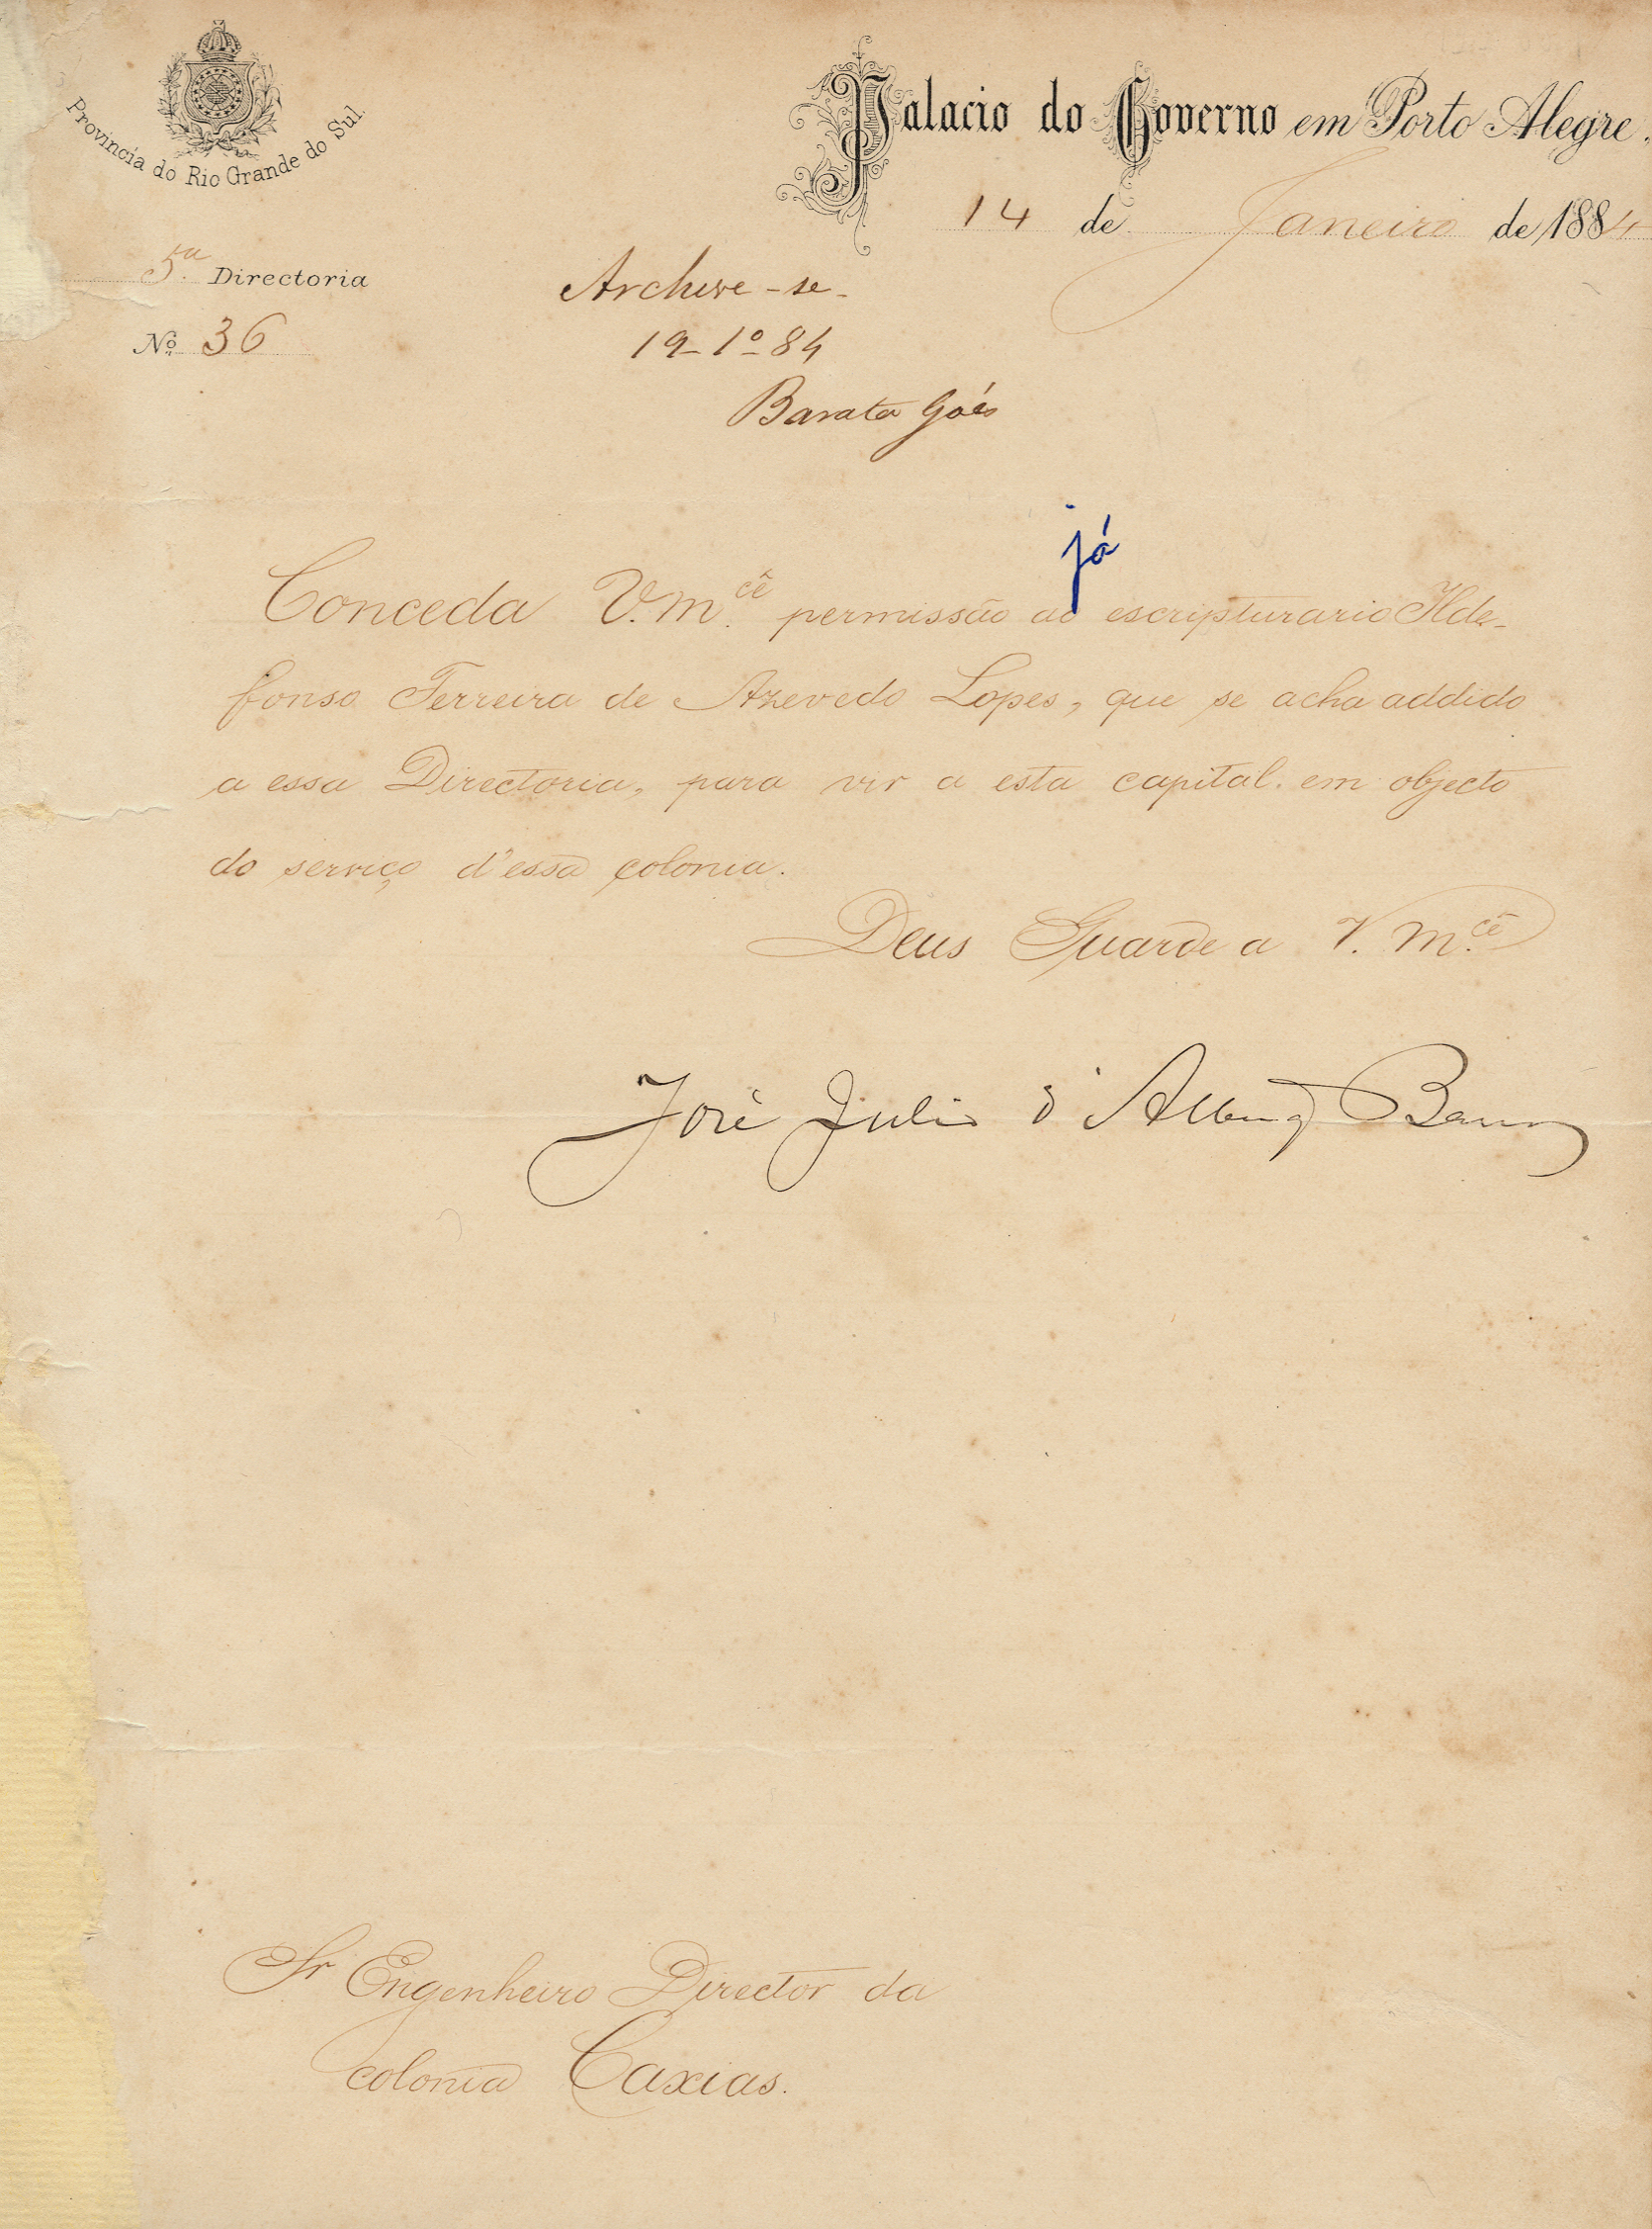 Provincia do Rio Grande do Sul.
Palacio do Governo em Porto Alegre.
14 de Janeiro de 1884
5.ª Directoria
Nº 36
Archive-se-
19-1º-84
Barata Góes
já
Conceda V. M.cê permissão ao escripturario Ilde-
fonso Ferreira de Azevedo Lopes, que se acha addido
a essa Directoria, para vir a esta capital. em objecto
do serviço d'essa colonia.
Deus Guarde a V. M.cê
José Julio d'Albuq Barros
Sr Engenheiro Director da
colonia Caxias.